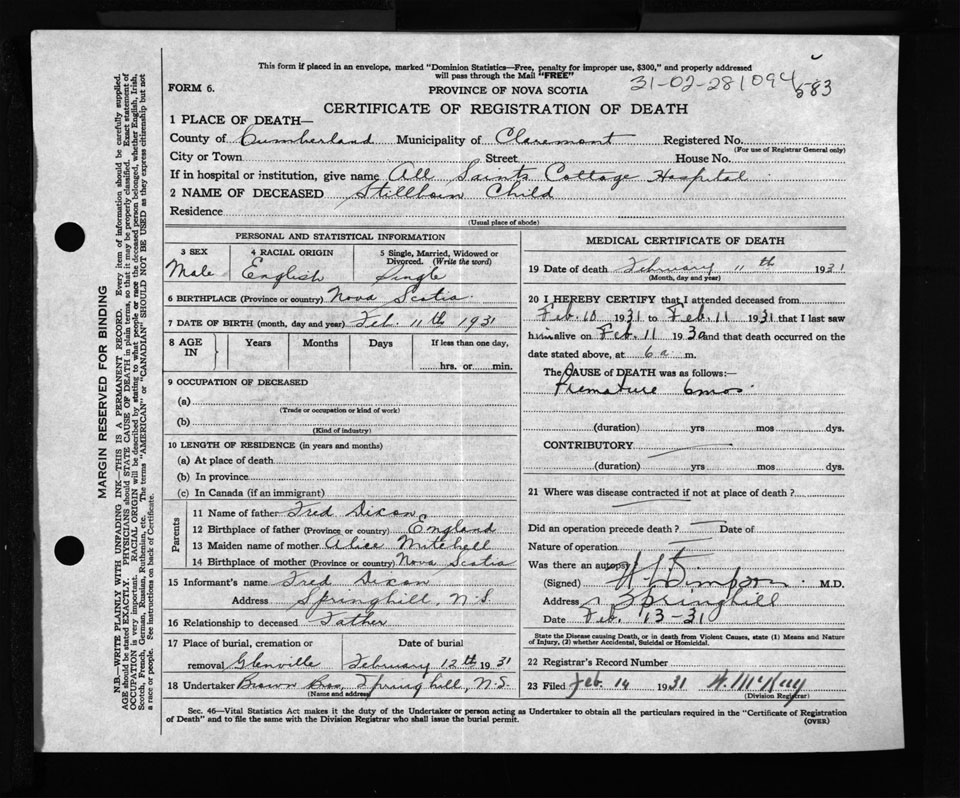 This form if placed in an envelope, marked "Dominion Statistics—Free, penalty for improper use, $300," and properly addressed
will pass through the Mail "FREE"
31-02-281094
583
FORM 6.
PROVINCE OF NOVA SCOTIA
CERTIFICATE OF REGISTRATION OF DEATH
1 PLACE OF DEATH—
County of Cumberland Municipality of Claremont Registered No.
(For use of Registrar General only)
City or Town Street House No.
If in hospital or institution, give name All Saints Cottage Hospital
2 NAME OF DECEASED Stillborn Child
Residence
(Usual place of abode)
PERSONAL AND STATISTICAL INFORMATION
3 SEX
Male
4 RACIAL ORIGIN
English
5 Single, Married, Widowed or
Divorced. (Write the word)
Single
6 BIRTHPLACE (Province or country) Nova Scotia
7 DATE OF BIRTH (month, day and year) Feb. 11th 1931
8 AGE
IN
Years Months Days If less than one day,
hrs. or min.
9 OCCUPATION OF DECEASED
(a)
(Trade or occupation or kind of work)
(b)
(Kind of industry)
10 LENGTH OF RESIDENCE (in years and months)
(a) At place of death
(b) In province
(c) In Canada (if an immigrant)
Parents
11 Name of father Fred Dixon
12 Birthplace of father (Province or country) England
13 Maiden name of mother Alice Mitchell
14 Birthplace of mother (Province or country) Nova Scotia
15 Informant's name Fred Dixon
Address Springhill, N.S.
16 Relationship to deceased Father
17 Place of burial, cremation or Date of burial
removal Glenville February 12th 1931
18 Undertaker Brown Bros, Springhill, N.S.
(Name and address)
MEDICAL CERTIFICATE OF DEATH
19 Date of death February 11th 1931
(Month, day and year)
20 I HEREBY CERTIFY that I attended deceased from
Feb. 10 1931 to Feb. 11 1931 that I last saw
him alive on Feb. 11 193 and that death occurred on the
date stated above, at 6 a m.
The CAUSE of DEATH was as follows:—
Premature 6mos
(duration) yrs mos dys.
CONTRIBUTORY
(duration) yrs mos dys.
21 Where was disease contracted if not at place of death?
Did an operation precede death? Date of
Nature of operation
Was there an autopsy
(Signed) Simpson M.D.
Address Springhill
Date Feb. 13-31
State the Disease causing Death, or in death from Violent Causes, state (1) Means and Nature
of Injury, (2) whether Accidental, Suicidal or Homicidal.
22 Registrar's Record Number
23 Filed Feb. 14 1931 McKay
(Division Registrar)
Sec. 46—Vital Statistics Act makes it the duty of the Undertaker or person acting as Undertaker to obtain all the particulars required in the "Certificate of Registration
of Death" and to file the same with the Division Registrar who shall issue the burial permit.
(OVER)
MARGIN RESERVED FOR BINDING
N.B.—WRITE PLAINLY WITH UNFADING INK—THIS IS A PERMANENT RECORD. Every item of information should be carefully supplied.
AGE should be stated EXACTLY. PHYSICIANS should STATE CAUSE OF DEATH in plain terms, so that it may be properly classified. Exact statement of
OCCUPATION is very important. RACIAL ORIGIN will be described by stating to what people or race the deceased person belonged, whether English, Irish,
Scotch, French, German, Russian, Ruthenian, etc. The terms "AMERICAN" or "CANADIAN" SHOULD NOT BE USED as they express citizenship but not
a race or people. See instructions on back of Certificate.